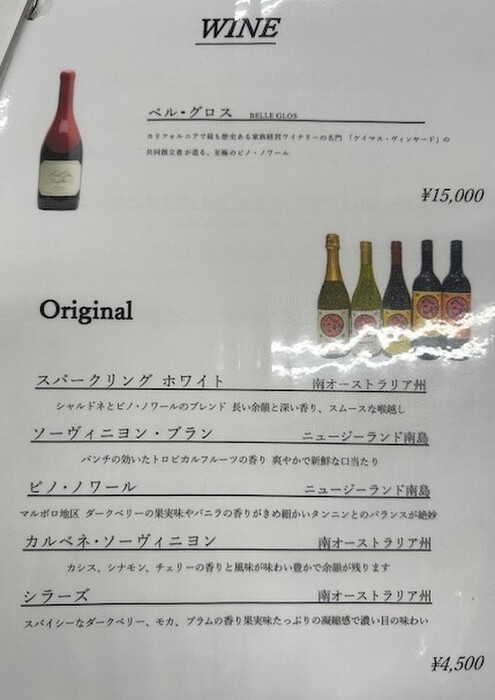 WINE
ベル・グロス BELLE GLOS
カリフォルニアで最も歴史ある家族経営ワイナリーの名門 「ケイマス・ヴィンヤード」の
共同創立者が造る、至極のピノ・ノワール
¥15,000
Original
スパークリング ホワイト 南オーストラリア州
シャルドネとピノ・ノワールのブレンド 長い余韻と深い香り、スムースな喉越し
ソーヴィニヨン・ブラン ニュージーランド南島
パンチの効いたトロピカルフルーツの香り 爽やかで新鮮な口当たり
ピノ・ノワール ニュージーランド南島
マルボロ地区 ダークベリーの果実味やバニラの香りがきめ細かいタンニンとのバランスが絶妙
カルベネ・ソーヴィニヨン 南オーストラリア州
カシス、シナモン、チェリーの香りと風味が味わい豊かで余韻が残ります
シラーズ 南オーストラリア州
スパイシーなダークベリー、モカ、プラムの香り果実味たっぷりの凝縮感で濃い目の味わい
¥4,500